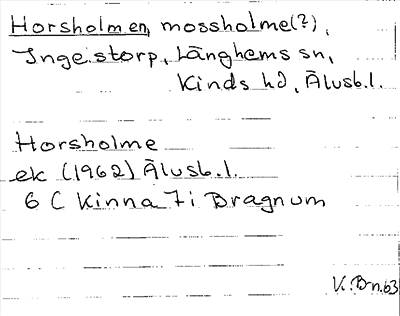 Horsholmen, mossholme(?),
Ingestorp, Länghems sn,
Kinds hd, Älvsb.l.
Horsholme
ek (1962) Älvsb.l.
6 C Kinna 7i Bragnum
V. Bn. 63